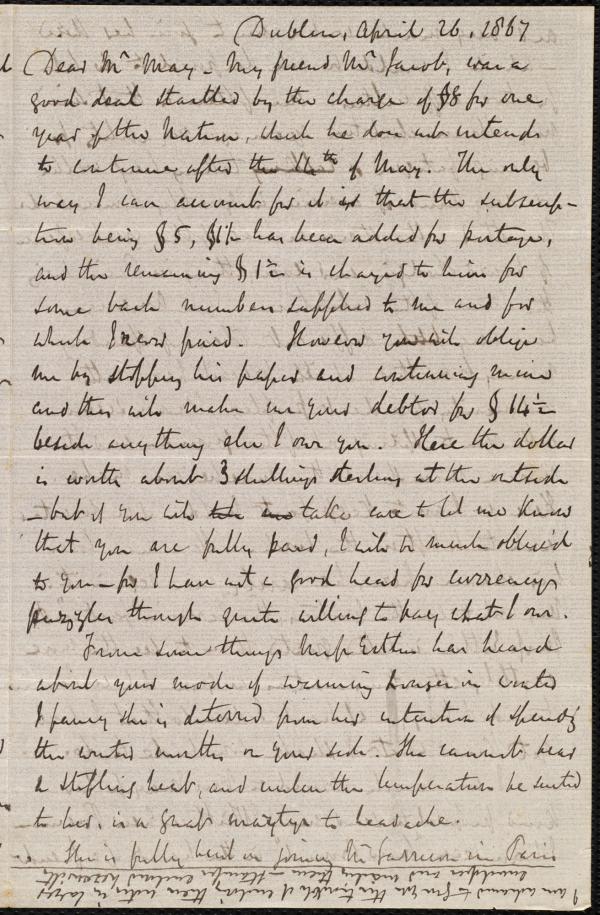 Dublin, April 26, 1867
Dear Mr May - My friend Mr Jacob, was a
good deal startled by the charge of $8 for one
year of the Nation, which he does not intend
to continue after the 14th of May. The only
way I can account for it is that the subscrip-
tion being $5, $1½ has been added for postage,
and the remaining $1½ is charged to him for
some back numbers supplied to me and for
which I never paid. However you will oblige
me by stopping his paper and continuing mine
and this will make me your debtor for $
beside anything else I owe you. Here the dollar
is worth about 3 shillings sterling at the outside
- but if you will take care to let me know
that you are fully paid, I will be much obliged
to you - for I have not a good head for currency
puzzles though quite willing to pay what I owe.
From some things Miss Estlin has heard
about your mode of warming houses in winter
I fancy she is deterred from her intention of spendg
the winter months on your side. She cannot bear
a stifling heat, and unless the temperature be suited
to her, is a great martyr to headache.
She is fully bent on joining Mr Garrison in Paris
I am ashamed to give you the trouble of enclosing these notes in
envelopes and mailing them - stamps enclosed herewith